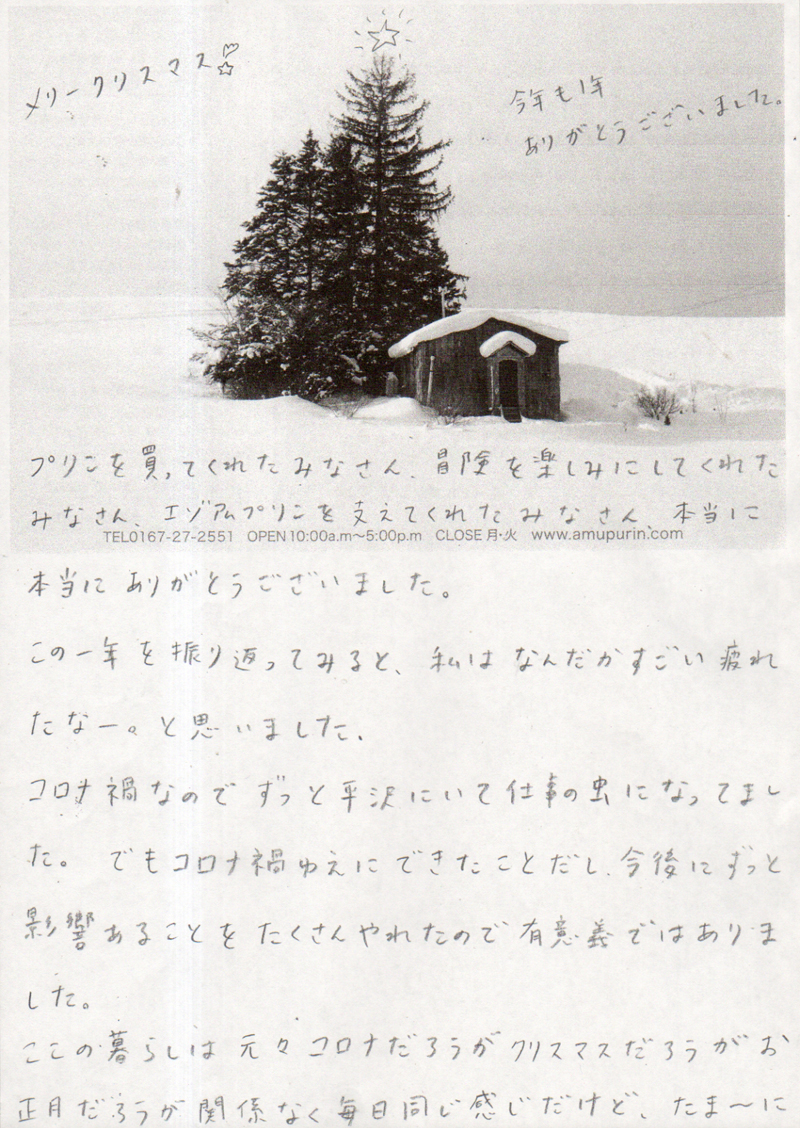 メリークリスマス
今年も1年
ありがとうございました。
プリンを買ってくれたみなさん、冒険を楽しみにしてくれた
みなさん、エゾアムプリンを支えてくれたみなさん、本当に
TEL0167-27-2551 OPEN10:00a.m～5:00p.m CLOSE 月・火 www.amupurin.com
本当にありがとうございました。
この一年を振り返ってみると、私はなんだかすごい疲れ
たなー。と思いました、
コロナ禍なのでずっと平沢にいて仕事の虫になってまし
た。でもコロナ禍ゆえにできたことだし、今後にずっと
影響あることをたくさんやれたので有意義ではありま
した。
ここの暮らしは元々コロナだろうがクリスマスだろうがお
正月だろうが関係なく毎日同じ感じだけど、たま〜に